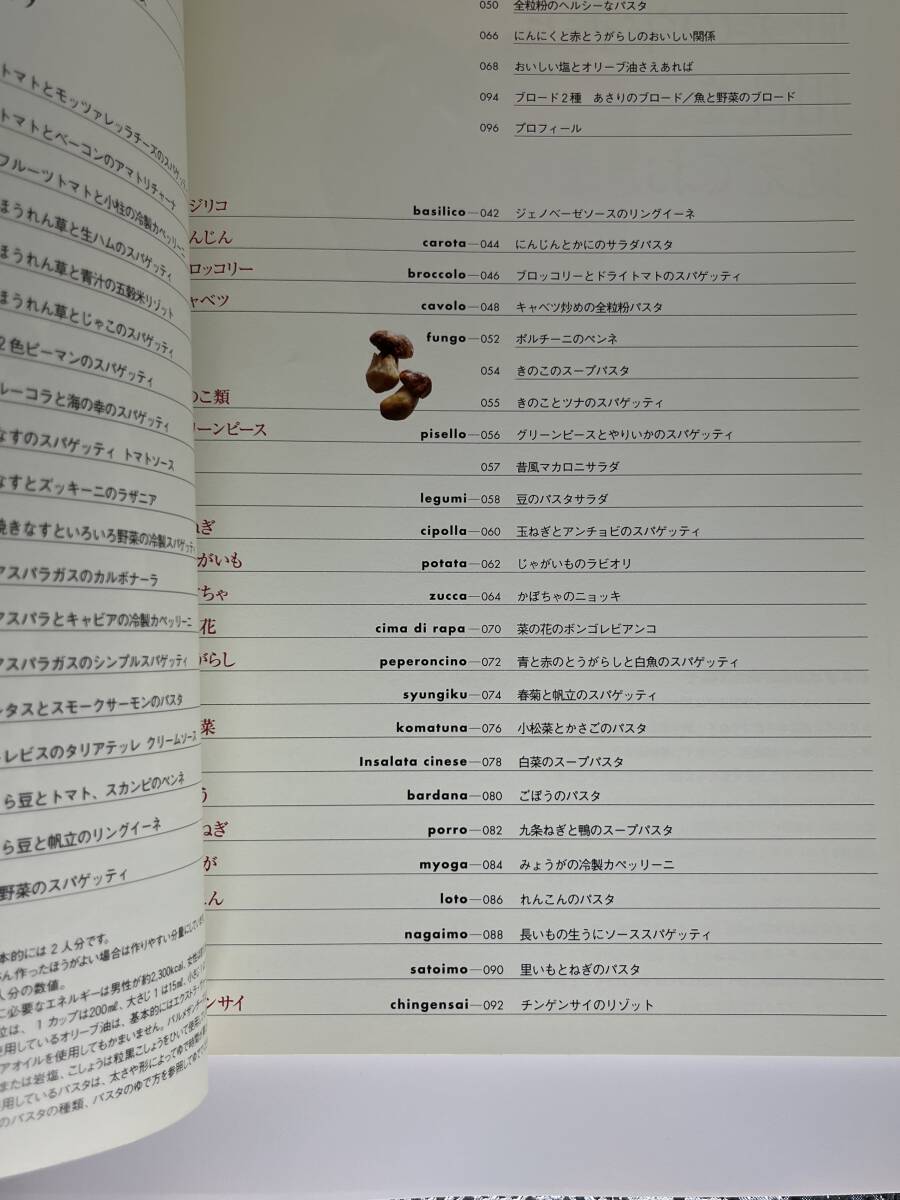 トマトとモッツァレッラチーズのスパゲッティ
トマトとベーコンのアマトリチャーナ
フルーツトマトと小柱の冷製カペッリーニ
ほうれん草と生ハムのスパゲッティ
ほうれん草と青汁の五穀米リゾット
ほうれん草とじゃこのスパゲッティ
2色ピーマンのスパゲッティ
ルーコラと海の幸のスパゲッティ
なすのスパゲッティ トマトソース
なすとズッキーニのラザニア
焼きなすといろいろ野菜の冷製スパゲッティ
アスパラガスのカルボナーラ
アスパラとキャビアの冷製カペッリーニ
アスパラガスのシンプルスパゲッティ
タスとスモークサーモンのパスタ
レビスのタリアテッレ クリームソース
ら豆とトマト、スカンピのペンネ
ら豆と帆立のリングイーネ
野菜のスパゲッティ
本的には2人分です。
ん作ったほうがよい場合は作りやすい分量にしていま
人分の数値。
に必要なエネルギーは男性が約2,300kcal、女性は
位は、1カップは200ml、大さじ1は15ml、小さじ1は
使用しているオリーブ油は、基本的にはエクストラ
アオイルを使用してもかまいません。パルメザンチー
または岩塩、こしょうは粒黒こしょうをひいて使用
用しているパスタは、太さや形によってゆで時間が
のパスタの種類、パスタのゆで方を参照してゆでて
050 全粒粉のヘルシーなパスタ
066 にんにくと赤とうがらしのおいしい関係
068 おいしい塩とオリーブ油さえあれば
094 ブロード2種 あさりのブロード／魚と野菜のブロード
096 プロフィール
ジリコ basilico—042 ジェノベーゼソースのリングイーネ
んじん carota—044 にんじんとかにのサラダパスタ
ロッコリー broccolo—046 ブロッコリーとドライトマトのスパゲッティ
ャベツ cavolo—048 キャベツ炒めの全粒粉パスタ
fungo—052 ポルチーニのペンネ
054 きのこのスープパスタ
のこ類 055 きのことツナのスパゲッティ
リーンピース pisello—056 グリーンピースとやりいかのスパゲッティ
057 昔風マカロニサラダ
legumi—058 豆のパスタサラダ
ねぎ cipolla—060 玉ねぎとアンチョビのスパゲッティ
がいも potata—062 じゃがいものラビオリ
ちゃ zucca—064 かぼちゃのニョッキ
花 cima di rapa—070 菜の花のボンゴレビアンコ
がらし peperoncino—072 青と赤のとうがらしと白魚のスパゲッティ
syungiku—074 春菊と帆立のスパゲッティ
菜 komatuna—076 小松菜とかさごのパスタ
Insalata cinese—078 白菜のスープパスタ
う bardana—080 ごぼうのパスタ
ねぎ porro—082 九条ねぎと鴨のスープパスタ
が myoga—084 みょうがの冷製カペッリーニ
こん loto—086 れんこんのパスタ
nagaimo—088 長いもの生うにソーススパゲッティ
satoimo—090 里いもとねぎのパスタ
ンサイ chingensai—092 チンゲンサイのリゾット